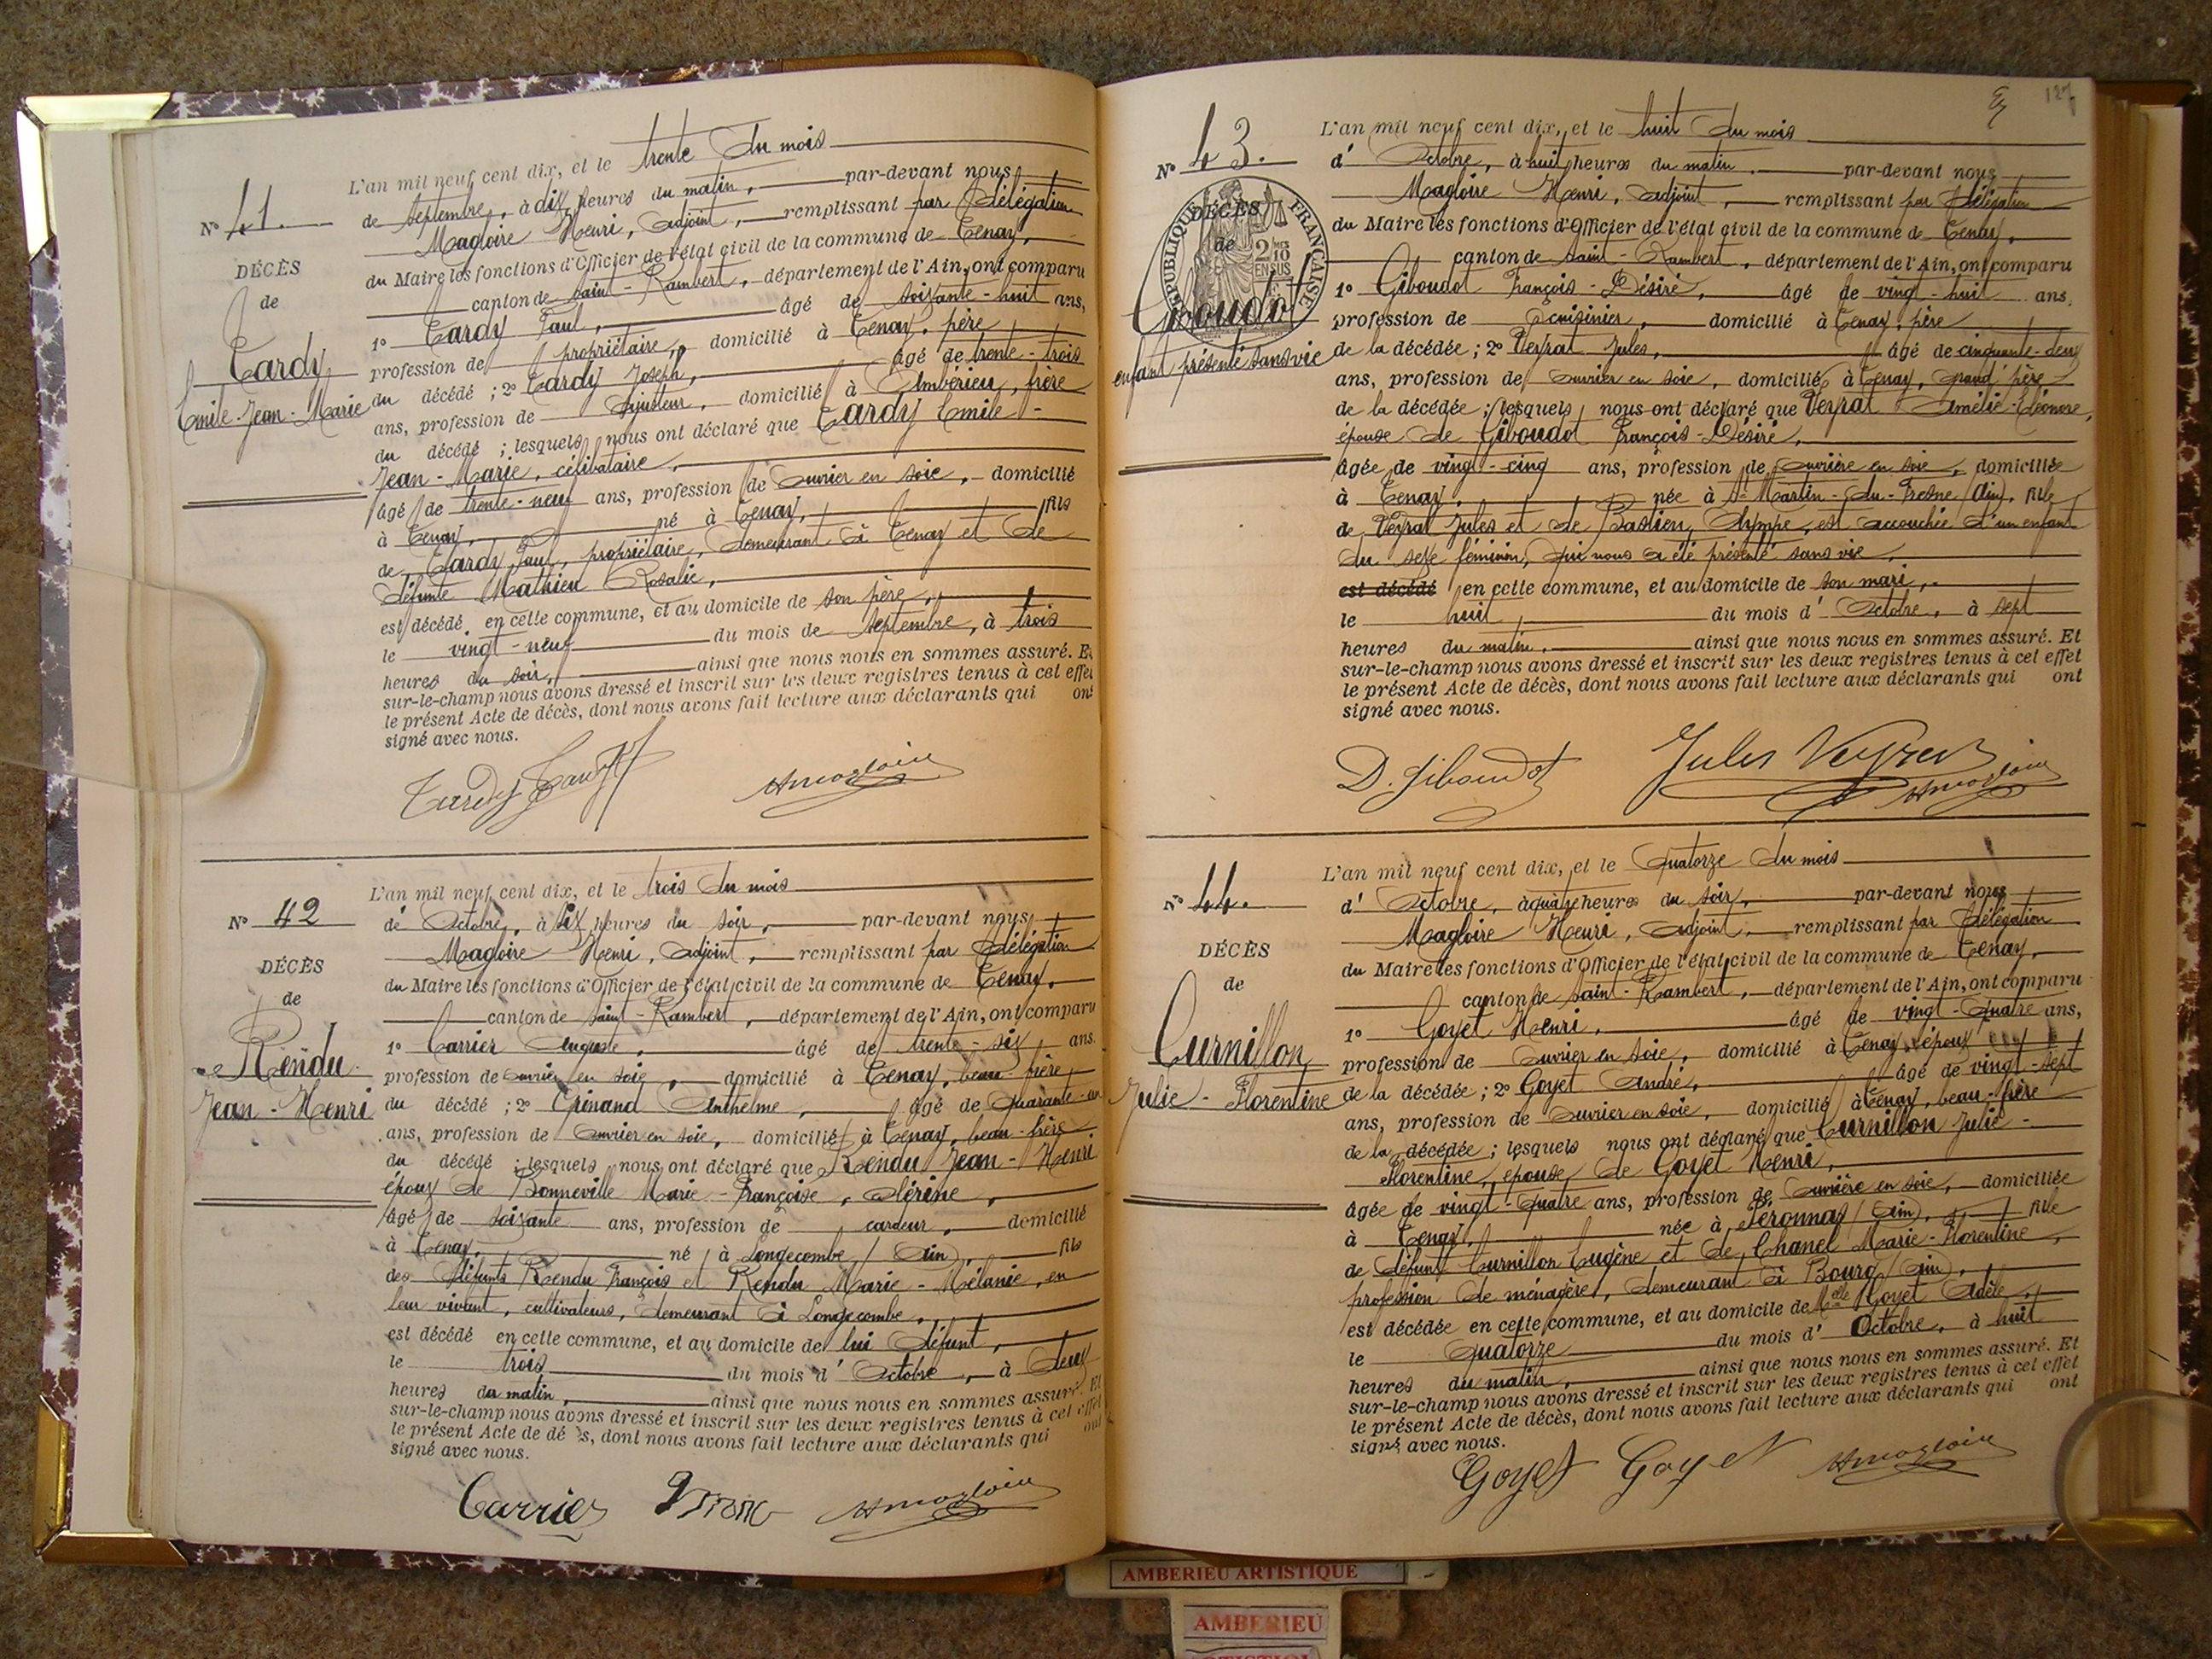 N° 41.
DÉCÈS
de
Tardy
Emile-Jean-Marie
L'an mil neuf cent dix, et le trente du mois
de septembre, à dix heures du matin, par-devant nous
Magloire Henri, adjoint, remplissant par délégation
du Maire les fonctions d'Officier de l'état civil de la commune de Tenay,
canton de Saint-Rambert, département de l'Ain, ont comparu
1° Tardy Paul, âgé de soixante-huit ans,
profession de propriétaire, domicilié à Tenay, père
du décédé ; 2° Tardy Joseph, âgé de trente-trois
ans, profession de ajusteur, domicilié à Ambérieu, frère
du décédé ; lesquels nous ont déclaré que Tardy Emile-
Jean-Marie, célibataire,
âgé de trente-neuf ans, profession de ouvrier en soie, domicilié
à Tenay, né à Tenay, fils
de Tardy Paul, propriétaire, demeurant à Tenay et de
défunte Mathieu Rosalie,
est décédé en cette commune, et au domicile de son père,
le vingt-neuf du mois de septembre, à trois
heures du soir, ainsi que nous nous en sommes assuré. Et
sur-le-champ nous avons dressé et inscrit sur les deux registres tenus à cet effet
le présent Acte de décès, dont nous avons fait lecture aux déclarants qui ont
signé avec nous.
Tardy Tardy HMagloire
N° 42
DÉCÈS
de
Rendu
Jean-Henri
L'an mil neuf cent dix, et le trois du mois
d' Octobre, à six heures du soir, par-devant nous
Magloire Henri, adjoint, remplissant par délégation
du Maire les fonctions d'Officier de l'état civil de la commune de Tenay,
canton de Saint-Rambert, département de l'Ain, ont comparu
1° Carrier Auguste, âgé de trente-six ans,
profession de ouvrier en soie, domicilié à Tenay, beau-frère
du décédé ; 2° Grinand Anthelme, âgé de quarante-un
ans, profession de ouvrier en soie, domicilié à Tenay, beau-frère
du décédé ; lesquels nous ont déclaré que Rendu Jean-Henri
époux de Bonneville Marie-Françoise,
âgé de soixante ans, profession de cardeur, domicilié
à Tenay, né à Longecombe (Ain), fils
des défunts Rendu François et Rendu Marie-Mélanie, en
leur vivant, cultivateurs, demeurant à Longecombe,
est décédé en cette commune, et au domicile de lui défunt,
le trois du mois d' Octobre, à deux
heures du matin, ainsi que nous nous en sommes assuré. Et
sur-le-champ nous avons dressé et inscrit sur les deux registres tenus à cet effet
le présent Acte de décès, dont nous avons fait lecture aux déclarants qui ont
signé avec nous.
Carrier HMagloire
127
N° 43.
RÉPUBLIQUE FRANÇAISE
2/10 EN SUS
DÉCÈS
de
Giboudot
enfant présenté sans vie
L'an mil neuf cent dix, et le huit du mois
d' Octobre, à huit heures du matin, par-devant nous
Magloire Henri, adjoint, remplissant par délégation
du Maire les fonctions d'Officier de l'état civil de la commune de Tenay,
canton de Saint-Rambert, département de l'Ain, ont comparu
1° Giboudot François-Désiré, âgé de vingt-huit ans,
profession de cuisinier, domicilié à Tenay, père
de la décédée ; 2° Veyrat Jules, âgé de cinquante-deux
ans, profession de ouvrier en soie, domicilié à Tenay, grand'père
de la décédée ; lesquels nous ont déclaré que Veyrat Amélie-Eléonore,
épouse de Giboudot François-Désiré,
âgée de vingt-cinq ans, profession de ouvrière en soie, domiciliée
à Tenay, née à St-Martin-du-Fresne (Ain), fille
de Veyrat Jules et de Bastien Olympe, est accouchée d'un enfant
du sexe féminin, qui nous a été présenté sans vie,
est décédé en cette commune, et au domicile de son mari,
le huit du mois d' Octobre, à sept
heures du matin, ainsi que nous nous en sommes assuré. Et
sur-le-champ nous avons dressé et inscrit sur les deux registres tenus à cet effet
le présent Acte de décès, dont nous avons fait lecture aux déclarants qui ont
signé avec nous.
D. Giboudot Jules Veyrat HMagloire
N° 44.
DÉCÈS
de
Curnillon
Julie-Florentine
L'an mil neuf cent dix, et le quatorze du mois
d' Octobre, à quatre heures du soir, par-devant nous
Magloire Henri, adjoint, remplissant par délégation
du Maire les fonctions d'Officier de l'état civil de la commune de Tenay,
canton de Saint-Rambert, département de l'Ain, ont comparu
1° Goyet Henri, âgé de vingt-quatre ans,
profession de ouvrier en soie, domicilié à Tenay, époux
de la décédée ; 2° Goyet André, âgé de vingt-sept
ans, profession de ouvrier en soie, domicilié à Tenay, beau-frère
de la décédée ; lesquels nous ont déclaré que Curnillon Julie-
Florentine, épouse de Goyet Henri,
âgée de vingt-quatre ans, profession de ouvrière en soie, domiciliée
à Tenay, née à Péronnas (Ain), fille
de défunt Curnillon Eugène et de Chanel Marie-Florentine,
profession de ménagère, demeurant à Bourg (Ain),
est décédée en cette commune, et au domicile de Melle Goyet Adèle,
le quatorze du mois d' Octobre, à huit
heures du matin, ainsi que nous nous en sommes assuré. Et
sur-le-champ nous avons dressé et inscrit sur les deux registres tenus à cet effet
le présent Acte de décès, dont nous avons fait lecture aux déclarants qui ont
signé avec nous.
Goyet Goyet HMagloire
AMBERIEU ARTISTIQUE
AMBERIEU